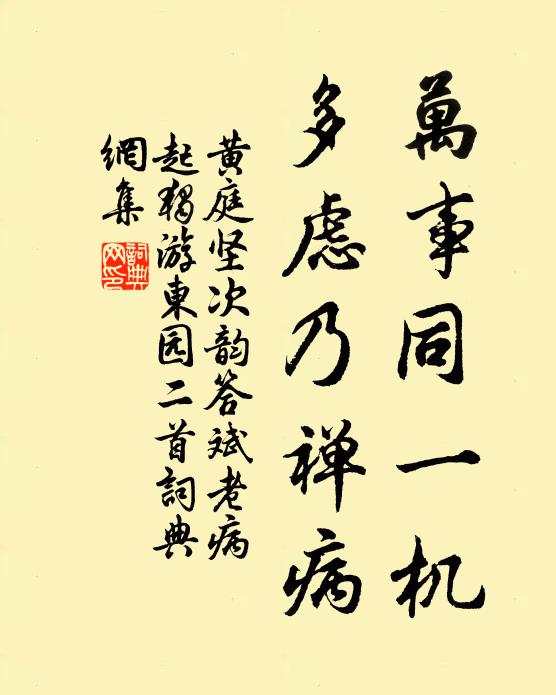 萬事同一机
多慮乃禅病
黄庭坚次韵答斌老病
起獨游東园二首詞典
網集
詞典
网印